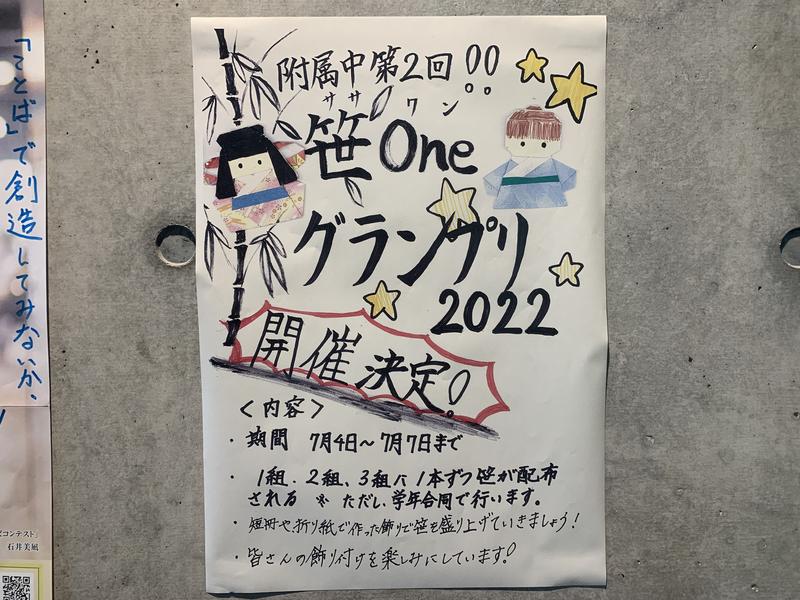 「ことば」で創造してみないか、
附属中第2回!!
ササ ワン
笹One
グランプリ
2022
開催決定!
<内容>
・期間 7月4日～7月7日まで
・1組．2組、3組に1本ずつ笹が配布
される ※ ただし、学年合同で行います。
・短冊や、折り紙で作った飾りで笹を盛り上げていきましょう！
・皆さんの飾り付けを楽しみにしています！
コンテスト」
石井美凪